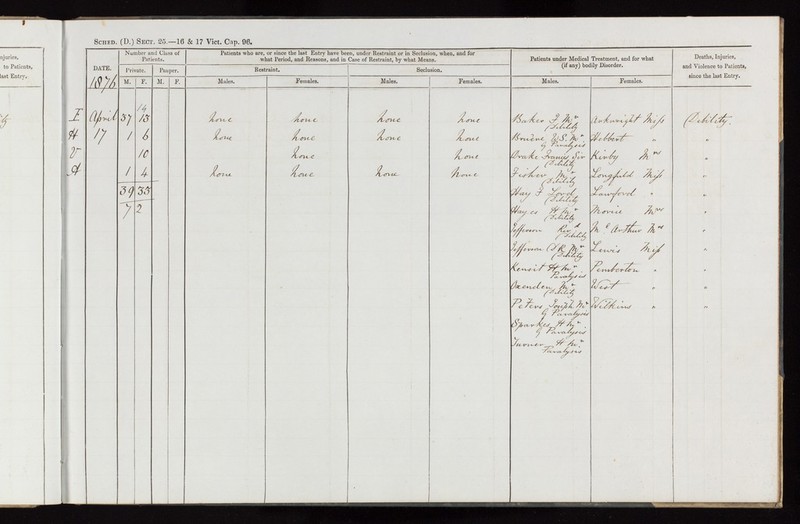 njuries,
to Patients,
last Entry.
SCHED. (D.) SECT. 25.—16 & 17 Vict. Cap. 96.
DATE.
Number and Class of Patients.
Private. Pauper.
M. F. M. F.
Patients who are, or since the last Entry have been, under Restraint or in Seclusion, when, and for
what Period, and Reasons, and in Case of Restraint, by what Means.
Restraint. Seclusion.
Males. Females. Males. Females.
Patients under Medical Treatment, and for what
(if any) bodily Disorder.
Males. Females.
Deaths, Injuries,
and Violence to Patients,
since the last Entry.
1876
14
E April 37 13 none none none none Baker F Mr Arkwright Miss (Debility
Debility
H 17 1 6 none none none none W. S. Mr Hebbert "
G Paralysis
V 10 none none Drake Francis Sir Kirby Mrs "
Debility
A 1 4 none none none none Fisher Mr Longfield Miss "
Debility
39 33 Hay F Lord Lawford " "
Debility
72 Hayes H Mr Movice Mrs "
Debility
Jefferson Revd McArthur Mrs "
Debility
Jefferson C R Mr Lewis Miss "
Debility
Kensit H Mr Pemberton " "
Paralysis
Oxenden Mr West " "
Debility
Peters Joseph Mr Wilkins " "
G Paralysis
Sparkes H Mr
G Paralysis
Turner H Mr
Paralysis